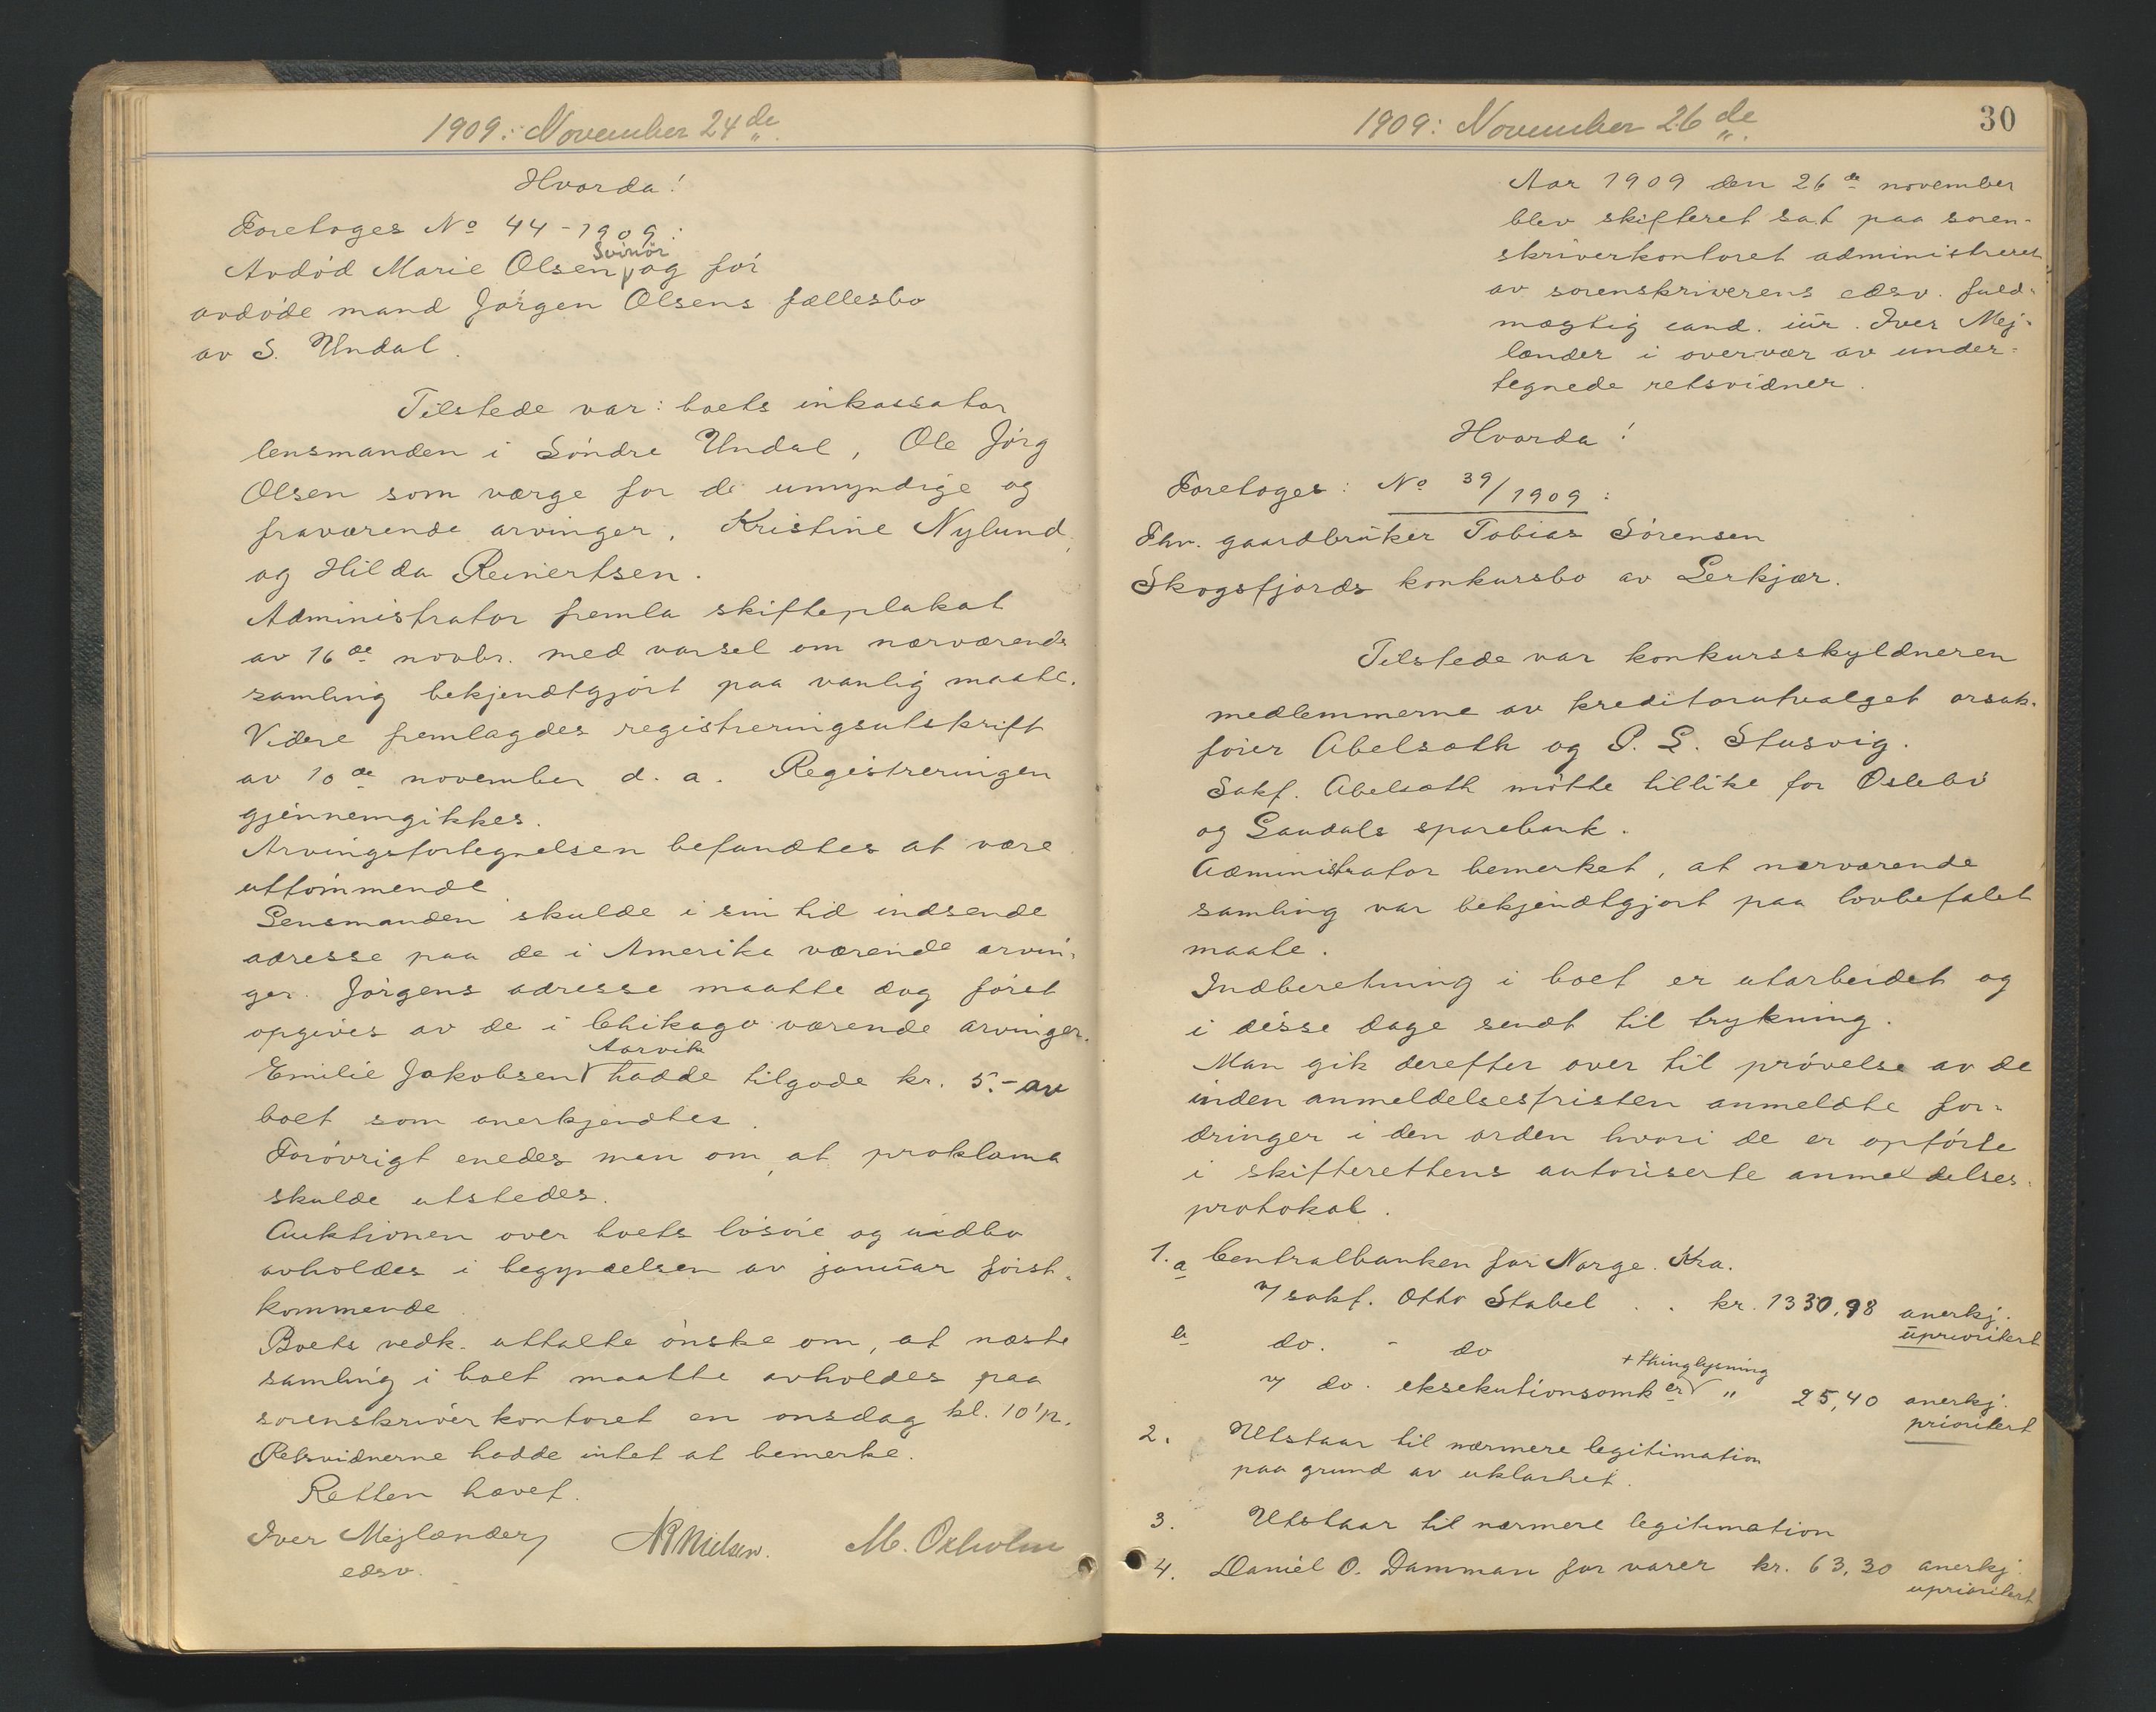 1909: November 24de
Hvorda!
Foretoges No 44-1909:
Svinör
Avdöd Marie Olsen og för
avdöde mand Jörgen Olsens fællesbo
av S. Undal.
Tilstede var: boets inkassator
lensmanden i Söndre Undal, Ole Jörg
Olsen som værge for de umyndige og
fraværende arvinger, Kristine Nylund,
og Hilda Reinertsen.
Administrator fremla skifteplakat
av 16de novbr. med varsel om nærværende
samling bekjendtgjört paa vanlig maate.
Videre fremlagdes registreringsutskrift
av 10de november d. a. Registreringen
gjennemgikkes.
Arvingsfortegnelsen befandtes at være
uttömmende
Lensmanden skulde i sin tid indsende
adresse paa de i Amerika værende arvin-
ger. Jörgens adresse maatte dog först
opgives av de i Chikago værende arvinger.
Aarvik
Emilie Jakobsen hadde tilgode kr. 5.- av
boet som anerkjendtes.
Forövrigt enedes man om, at proklama
skulde utstedes.
Auktionen over boets lösöre og indbo
avholdes i begyndelsen av januar först-
kommende.
Boets vedk. uttalte önske om, at næste
samling i boet maatte avholdes paa
sorenskriverkontoret en onsdag kl. 10 1/2.
Retsvidnerne hadde intet at bemerke.
Retten hævet.
Iver Mejlænder, M. Oxholm
edsv.
1909: November 26de
30
Aar 1909 den 26de november
blev skifteret sat paa soren-
skriverkontoret administreret
av sorenskriverens edsv. fuld-
mægtig cand. jur. Iver Mej-
lænder i overvær av under-
tegnede retsvidner.
Hvorda!
Foretoges: No 39/1909:
Fhv. gaardbruker Tobias Sörensen
Skogsfjords konkursbo av Lerkjær.
Tilstede var konkursskyldneren
medlemmerne av kreditorutvalget orsak-
förer Abelsæth og P. L. Stusvig.
Sakf. Abelsæth mötte tillike for Öslebö
og Laudals sparebank.
Administrator bemerket, at nærværende
samling var bekjendtgjort paa lovbefalet
maate.
Indberetning i boet er utarbeidet og
i disse dage sendt til trykning.
Man gik derefter over til prövelse av de
inden anmeldelsesfristen anmeldte for-
dringer i den orden hvori de er opförte
i skifterettens autoriserte anmeldelses-
protokol.
1. a Centralbanken for Norge. Kra.
v/ sakf. Otto Stabel . . kr. 1330,98 anerkj.
uprioritert
b do. - do
+ thinglysning
v/ do. eksekutionsomk er " 25,40 anerkj.
prioritert
2. Utstaar til nærmere legitimation
paa grund av uklarhet.
3. Utstaar til nærmere legitimation
4. Daniel O. Damman for varer kr. 63,30 anerkj.
uprioritert